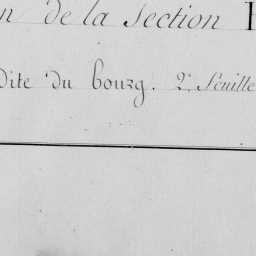 n de la Section
Dite du bourg. 2.e feuille